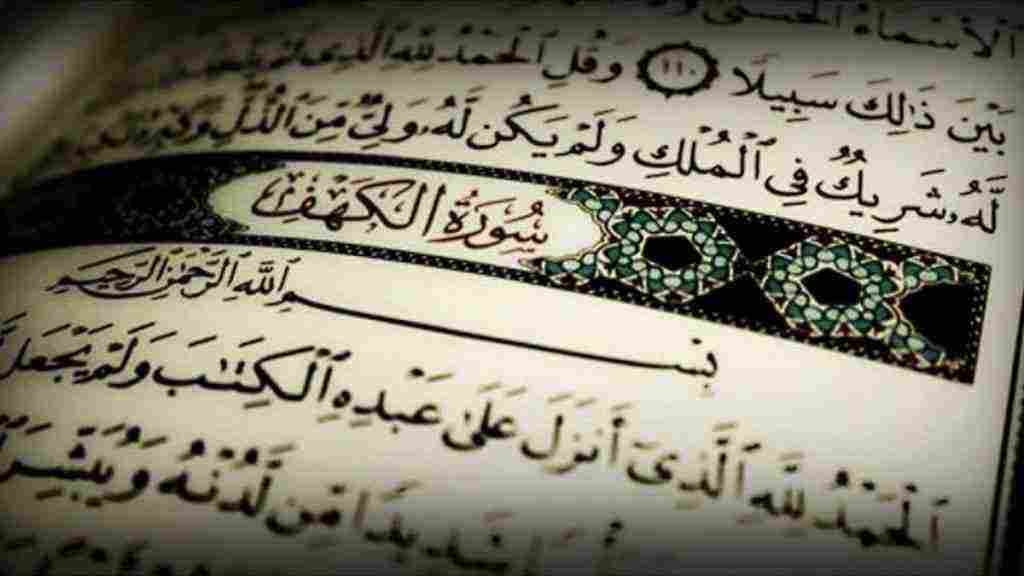 ٱلْأَسْمَآءُ ٱلْحُسْنَىٰ
بَيْنَ ذَٰلِكَ سَبِيلًا ١١٠ وَقُلِ ٱلْحَمْدُ لِلَّهِ ٱلَّذِى لَمْ يَتَّخِذْ
لَّهُۥ شَرِيكٌ فِى ٱلْمُلْكِ وَلَمْ يَكُن لَّهُۥ وَلِىٌّ مِّنَ ٱلذُّلِّ وَكَبِّرْهُ
سُورَةُ الْكَهْفِ
بِسْمِ ٱللَّهِ ٱلرَّحْمَٰنِ ٱلرَّحِيمِ
ٱلْحَمْدُ لِلَّهِ ٱلَّذِىٓ أَنزَلَ عَلَىٰ عَبْدِهِ ٱلْكِتَٰبَ وَلَمْ يَجْعَل
شَدِيدًا مِّن لَّدُنْهُ وَيُبَشِّرَ